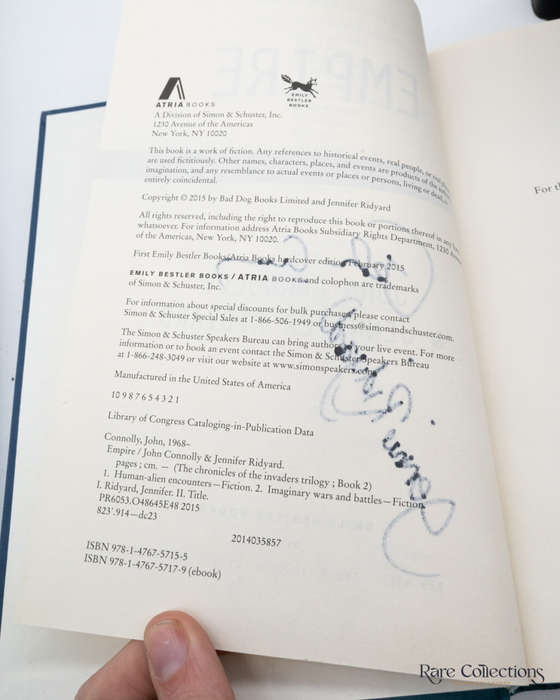 ATRIA BOOKS
EMILY
BESTLER
BOOKS
A Division of Simon & Schuster, Inc.
1230 Avenue of the Americas
New York, NY 10020
This book is a work of fiction. Any references to historical events, real people, or
are used fictitiously. Other names, characters, places, and events are products of the
imagination, and any resemblance to actual events or places or persons, living or dead,
entirely coincidental.
Copyright © 2015 by Bad Dog Books Limited and Jennifer Ridyard
All rights reserved, including the right to reproduce this book or portions thereof in any
whatsoever. For information address Atria Books Subsidiary Rights Department, 1230
of the Americas, New York, NY 10020.
First Emily Bestler Books/Atria Books hardcover edition February 2015
EMILY BESTLER BOOKS / ATRIA BOOKS and colophon are trademarks
of Simon & Schuster, Inc.
For information about special discounts for bulk purchases, please contact
Simon & Schuster Special Sales at 1-866-506-1949 or business@simonandschuster.com.
The Simon & Schuster Speakers Bureau can bring authors to your live event. For more
information or to book an event contact the Simon & Schuster Speakers Bureau
at 1-866-248-3049 or visit our website at www.simonspeakers.com.
Manufactured in the United States of America
10 9 8 7 6 5 4 3 2 1
Library of Congress Cataloging-in-Publication Data
Connolly, John, 1968–
Empire / John Connolly & Jennifer Ridyard.
pages ; cm. — (The chronicles of the invaders trilogy ; Book 2)
1. Human-alien encounters—Fiction. 2. Imaginary wars and battles—Fiction.
I. Ridyard, Jennifer. II. Title.
PR6053.O48645E48 2015
823'.914—dc23
2014035857
ISBN 978-1-4767-5715-5
ISBN 978-1-4767-5717-9 (ebook)
For th
Rare Collections